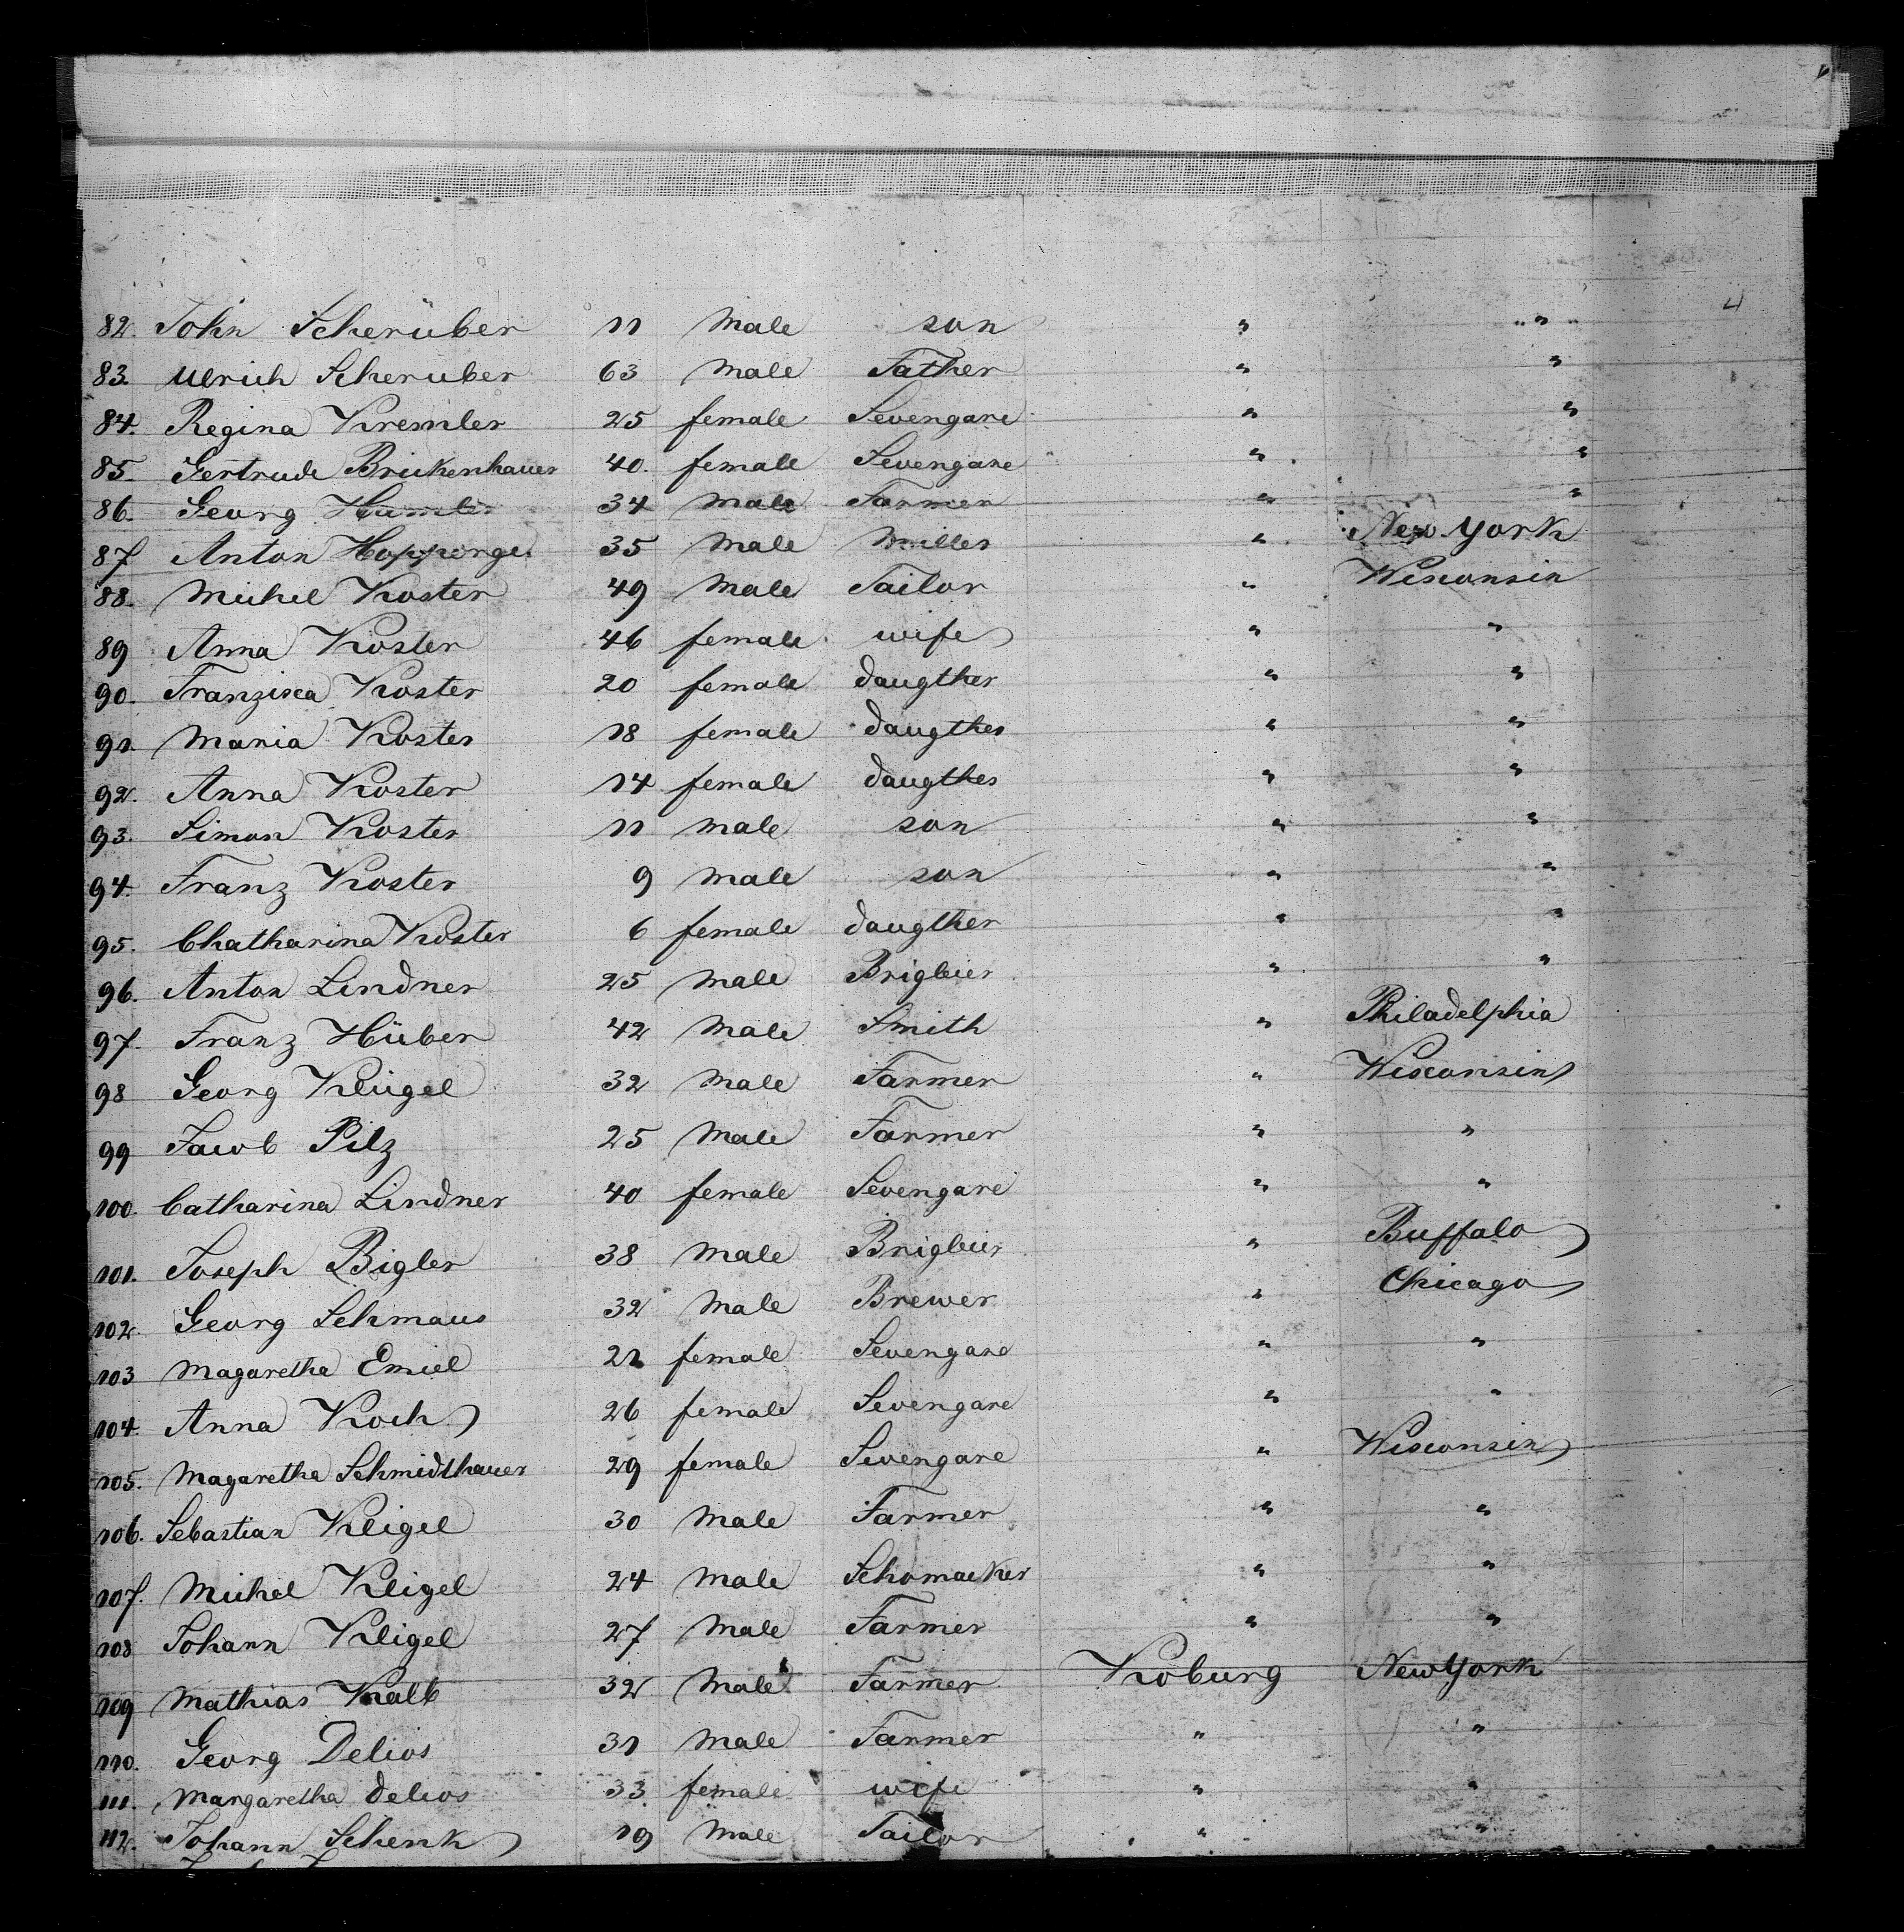 4
82. John Scherüber 11 Male son " "
83. Ulrich Scheruber 63 Male Father " "
84. Regina Kremler 25 female Sevengare " "
85. Gertrude Brickenhauer 40. female Sevengare " "
86. Georg 34 Male Farmer " "
87 Anton 35 Male Miller " New York
88. Michel Koster 49 Male Tailor " Wisconsin
89 Anna Koster 46 female wife " "
90. Franzisca Koster 20 female daugther " "
91. Maria Koster 18 female daugther " "
92. Anna Koster 14 female daugther " "
93. Simon Koster 11 male son " "
94. Franz Koster 9 male son " "
95. Chatharina Koster 6 female daugther " "
96. Anton Lindner 25 male " "
97. Franz Hüber 42 Male Smith " Philadelphia
98 Georg Klügel 32 Male Farmer " Wisconsin
99 Jacob Pilz 25 Male Farmer " "
100. Catharina Lindner 40 female Sevengare " "
101. Joseph Bigler 38 Male " Buffalo
102. Georg Schmaus 32 Male Brewer " Chicago
103 Magaretha Emiel 21 female Sevengare " "
104. Anna Koch 26 female Sevengare " "
105. Magaretha Schmidthauer 29 female Sevengare " Wisconsin
106. Sebastian Kligel 30 Male Farmer " "
107. Michel Kligel 24 Male Schomacker " "
108 Johann Kligel 27 Male Farmer " "
109 Mathias Kalb 32 Male Farmer Koburg New York
110. Georg Delios 31 Male Farmer " "
111. Margaretha Delios 33 female wife " "
112. Johann Schenk 19 Male Tailor " "